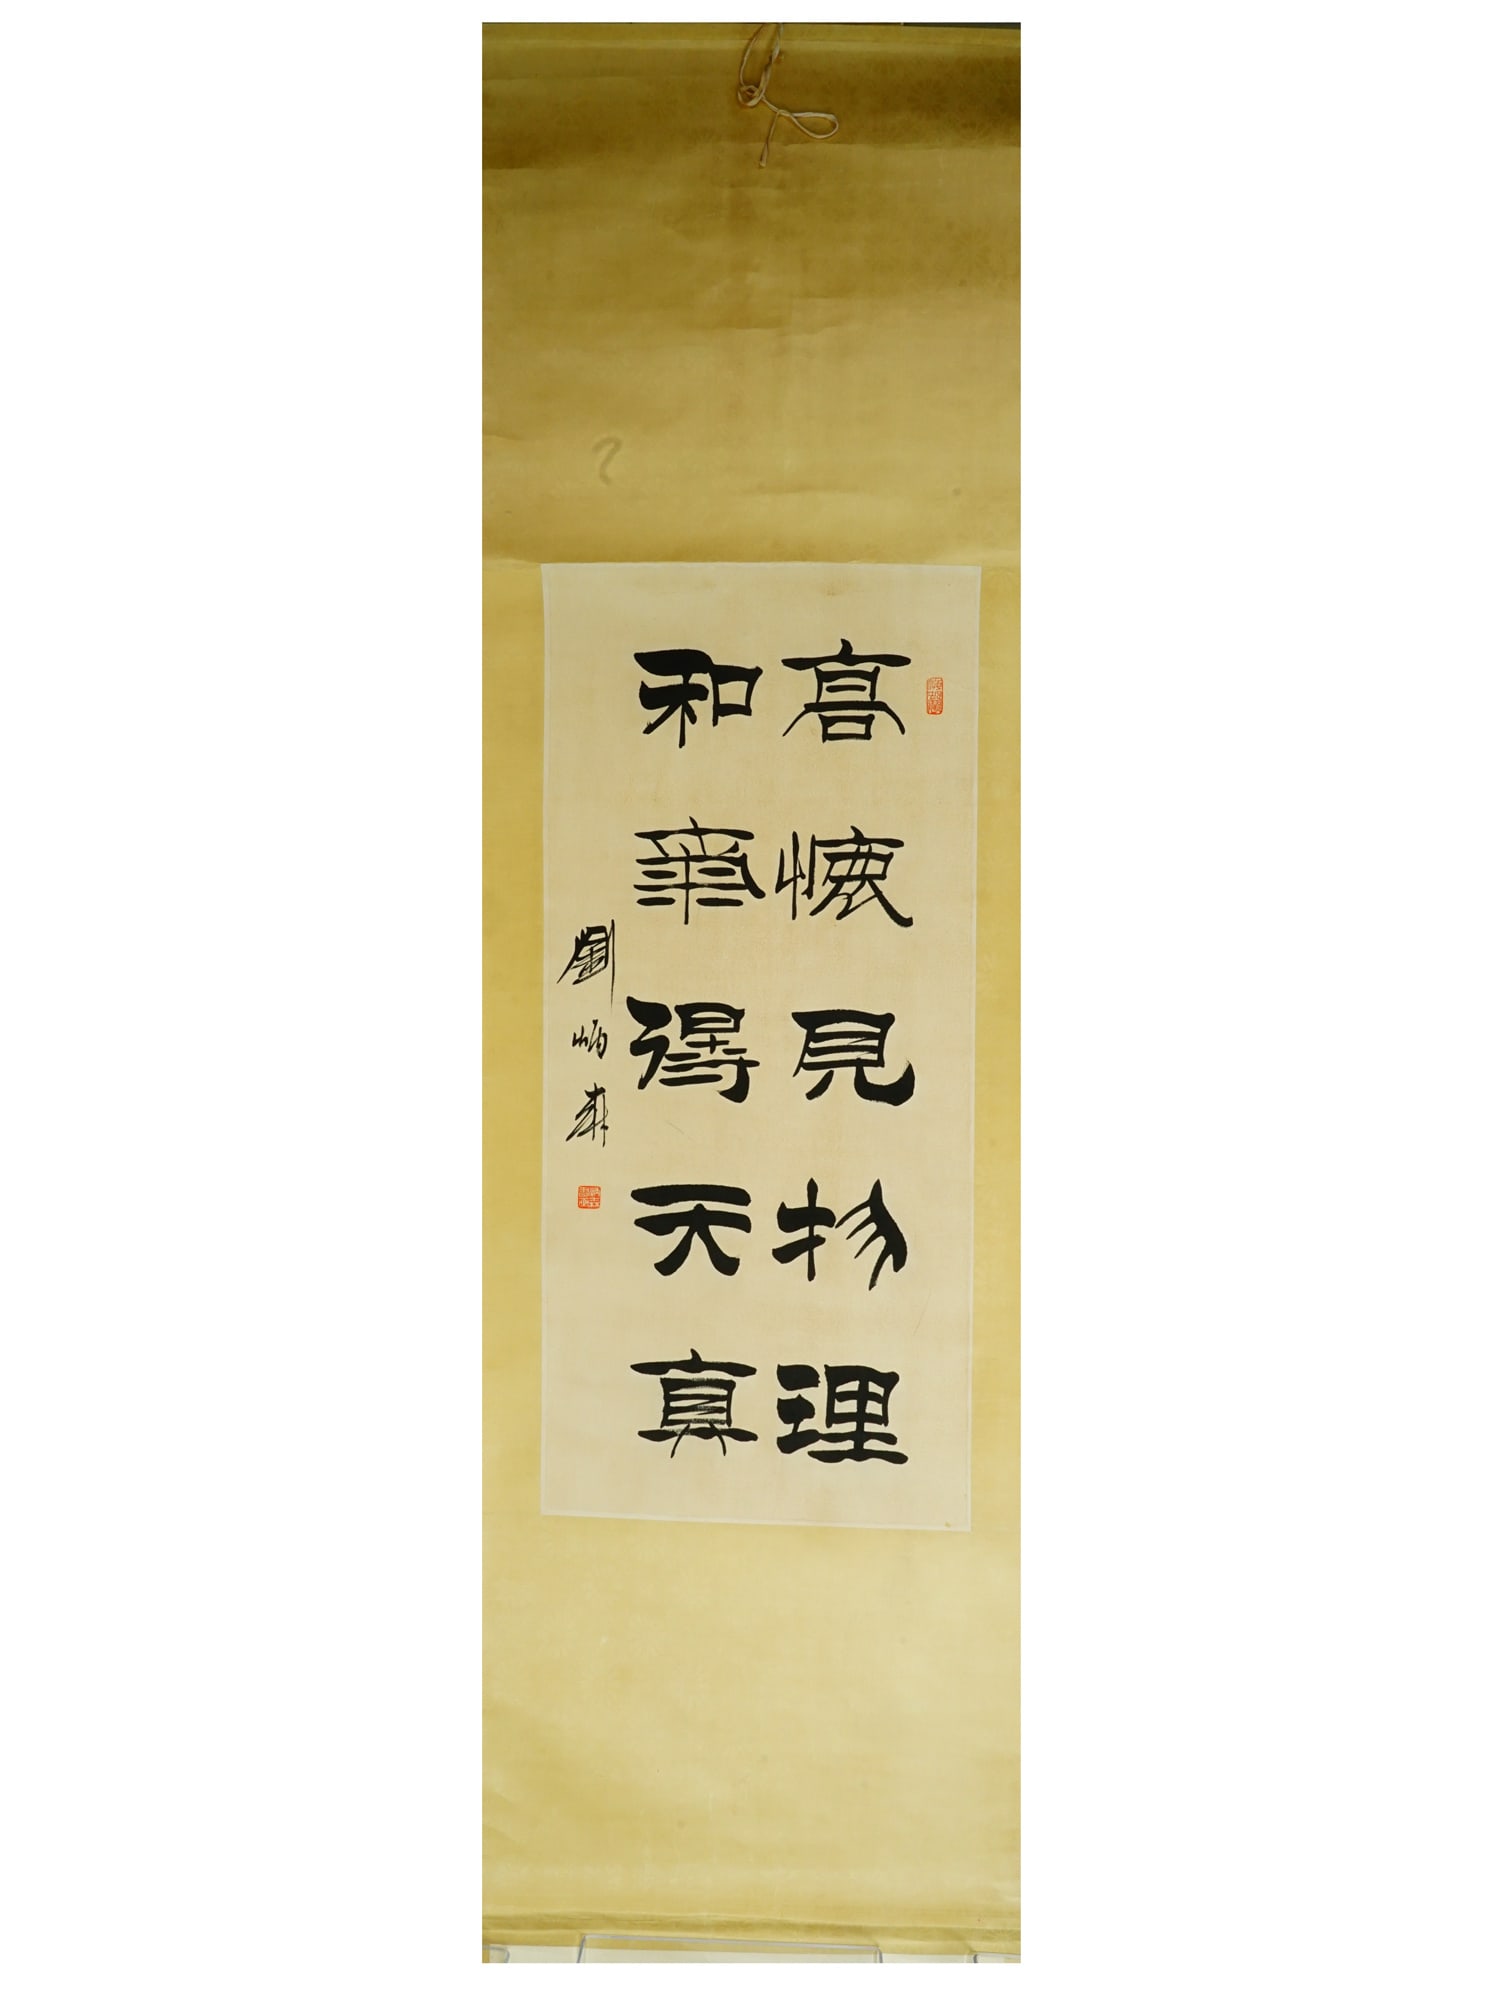 高懷見物理
和氣得天真
劉炳森